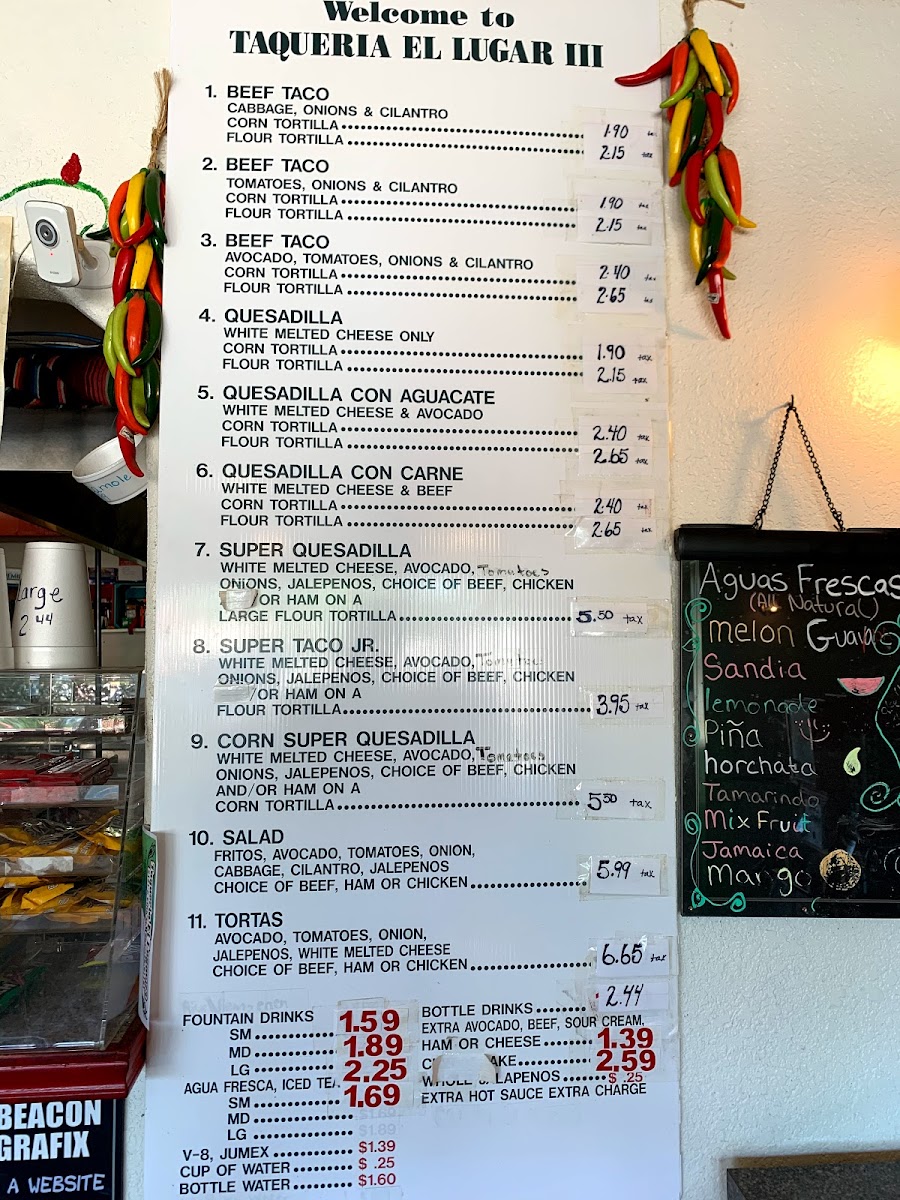 Welcome to
TAQUERIA EL LUGAR III
1. BEEF TACO
CABBAGE, ONIONS & CILANTRO
CORN TORTILLA 1.90
FLOUR TORTILLA 2.15 tax
2. BEEF TACO
TOMATOES, ONIONS & CILANTRO
CORN TORTILLA 1.90 tax
FLOUR TORTILLA 2.15 tax
3. BEEF TACO
AVOCADO, TOMATOES, ONIONS & CILANTRO
CORN TORTILLA 2.40 tax
FLOUR TORTILLA 2.65
4. QUESADILLA
WHITE MELTED CHEESE ONLY
CORN TORTILLA 1.90 tax
FLOUR TORTILLA 2.15 tax
5. QUESADILLA CON AGUACATE
WHITE MELTED CHEESE & AVOCADO
CORN TORTILLA 2.40 tax
FLOUR TORTILLA 2.65 tax
6. QUESADILLA CON CARNE
WHITE MELTED CHEESE & BEEF
CORN TORTILLA 2.40 tax
FLOUR TORTILLA 2.65 tax
7. SUPER QUESADILLA
WHITE MELTED CHEESE, AVOCADO, Tomatoes
ONIONS, JALEPENOS, CHOICE OF BEEF, CHICKEN
/OR HAM ON A
LARGE FLOUR TORTILLA 5.50 tax
8. SUPER TACO JR.
WHITE MELTED CHEESE, AVOCADO,
ONIONS, JALEPENOS, CHOICE OF BEEF, CHICKEN
/OR HAM ON A
FLOUR TORTILLA 3.95 tax
9. CORN SUPER QUESADILLA
WHITE MELTED CHEESE, AVOCADO, Tomatoes
ONIONS, JALEPENOS, CHOICE OF BEEF, CHICKEN
AND/OR HAM ON A
CORN TORTILLA 5.50 tax
10. SALAD
FRITOS, AVOCADO, TOMATOES, ONION,
CABBAGE, CILANTRO, JALEPENOS
CHOICE OF BEEF, HAM OR CHICKEN 5.99 tax
11. TORTAS
AVOCADO, TOMATOES, ONION,
JALEPENOS, WHITE MELTED CHEESE
CHOICE OF BEEF, HAM OR CHICKEN 6.65 tax
FOUNTAIN DRINKS
SM 1.59
MD 1.89
LG 2.25
AGUA FRESCA, ICED
SM 1.69
MD
LG
V-8, JUMEX $1.39
CUP OF WATER $ .25
BOTTLE WATER $1.60
BOTTLE DRINKS 2.44
EXTRA AVOCADO, BEEF, SOUR CREAM,
HAM OR CHEESE 1.39
2.59
WHOLE JALAPENOS $ .25
EXTRA HOT SAUCE EXTRA CHARGE
Large
2.44
BEACON
GRAFIX
A WEBSITE
Aguas Frescas
(All Natural)
melon Guava
Sandia
lemonade
Piña
horchata
Tamarindo
Mix Fruit
Jamaica
Mango